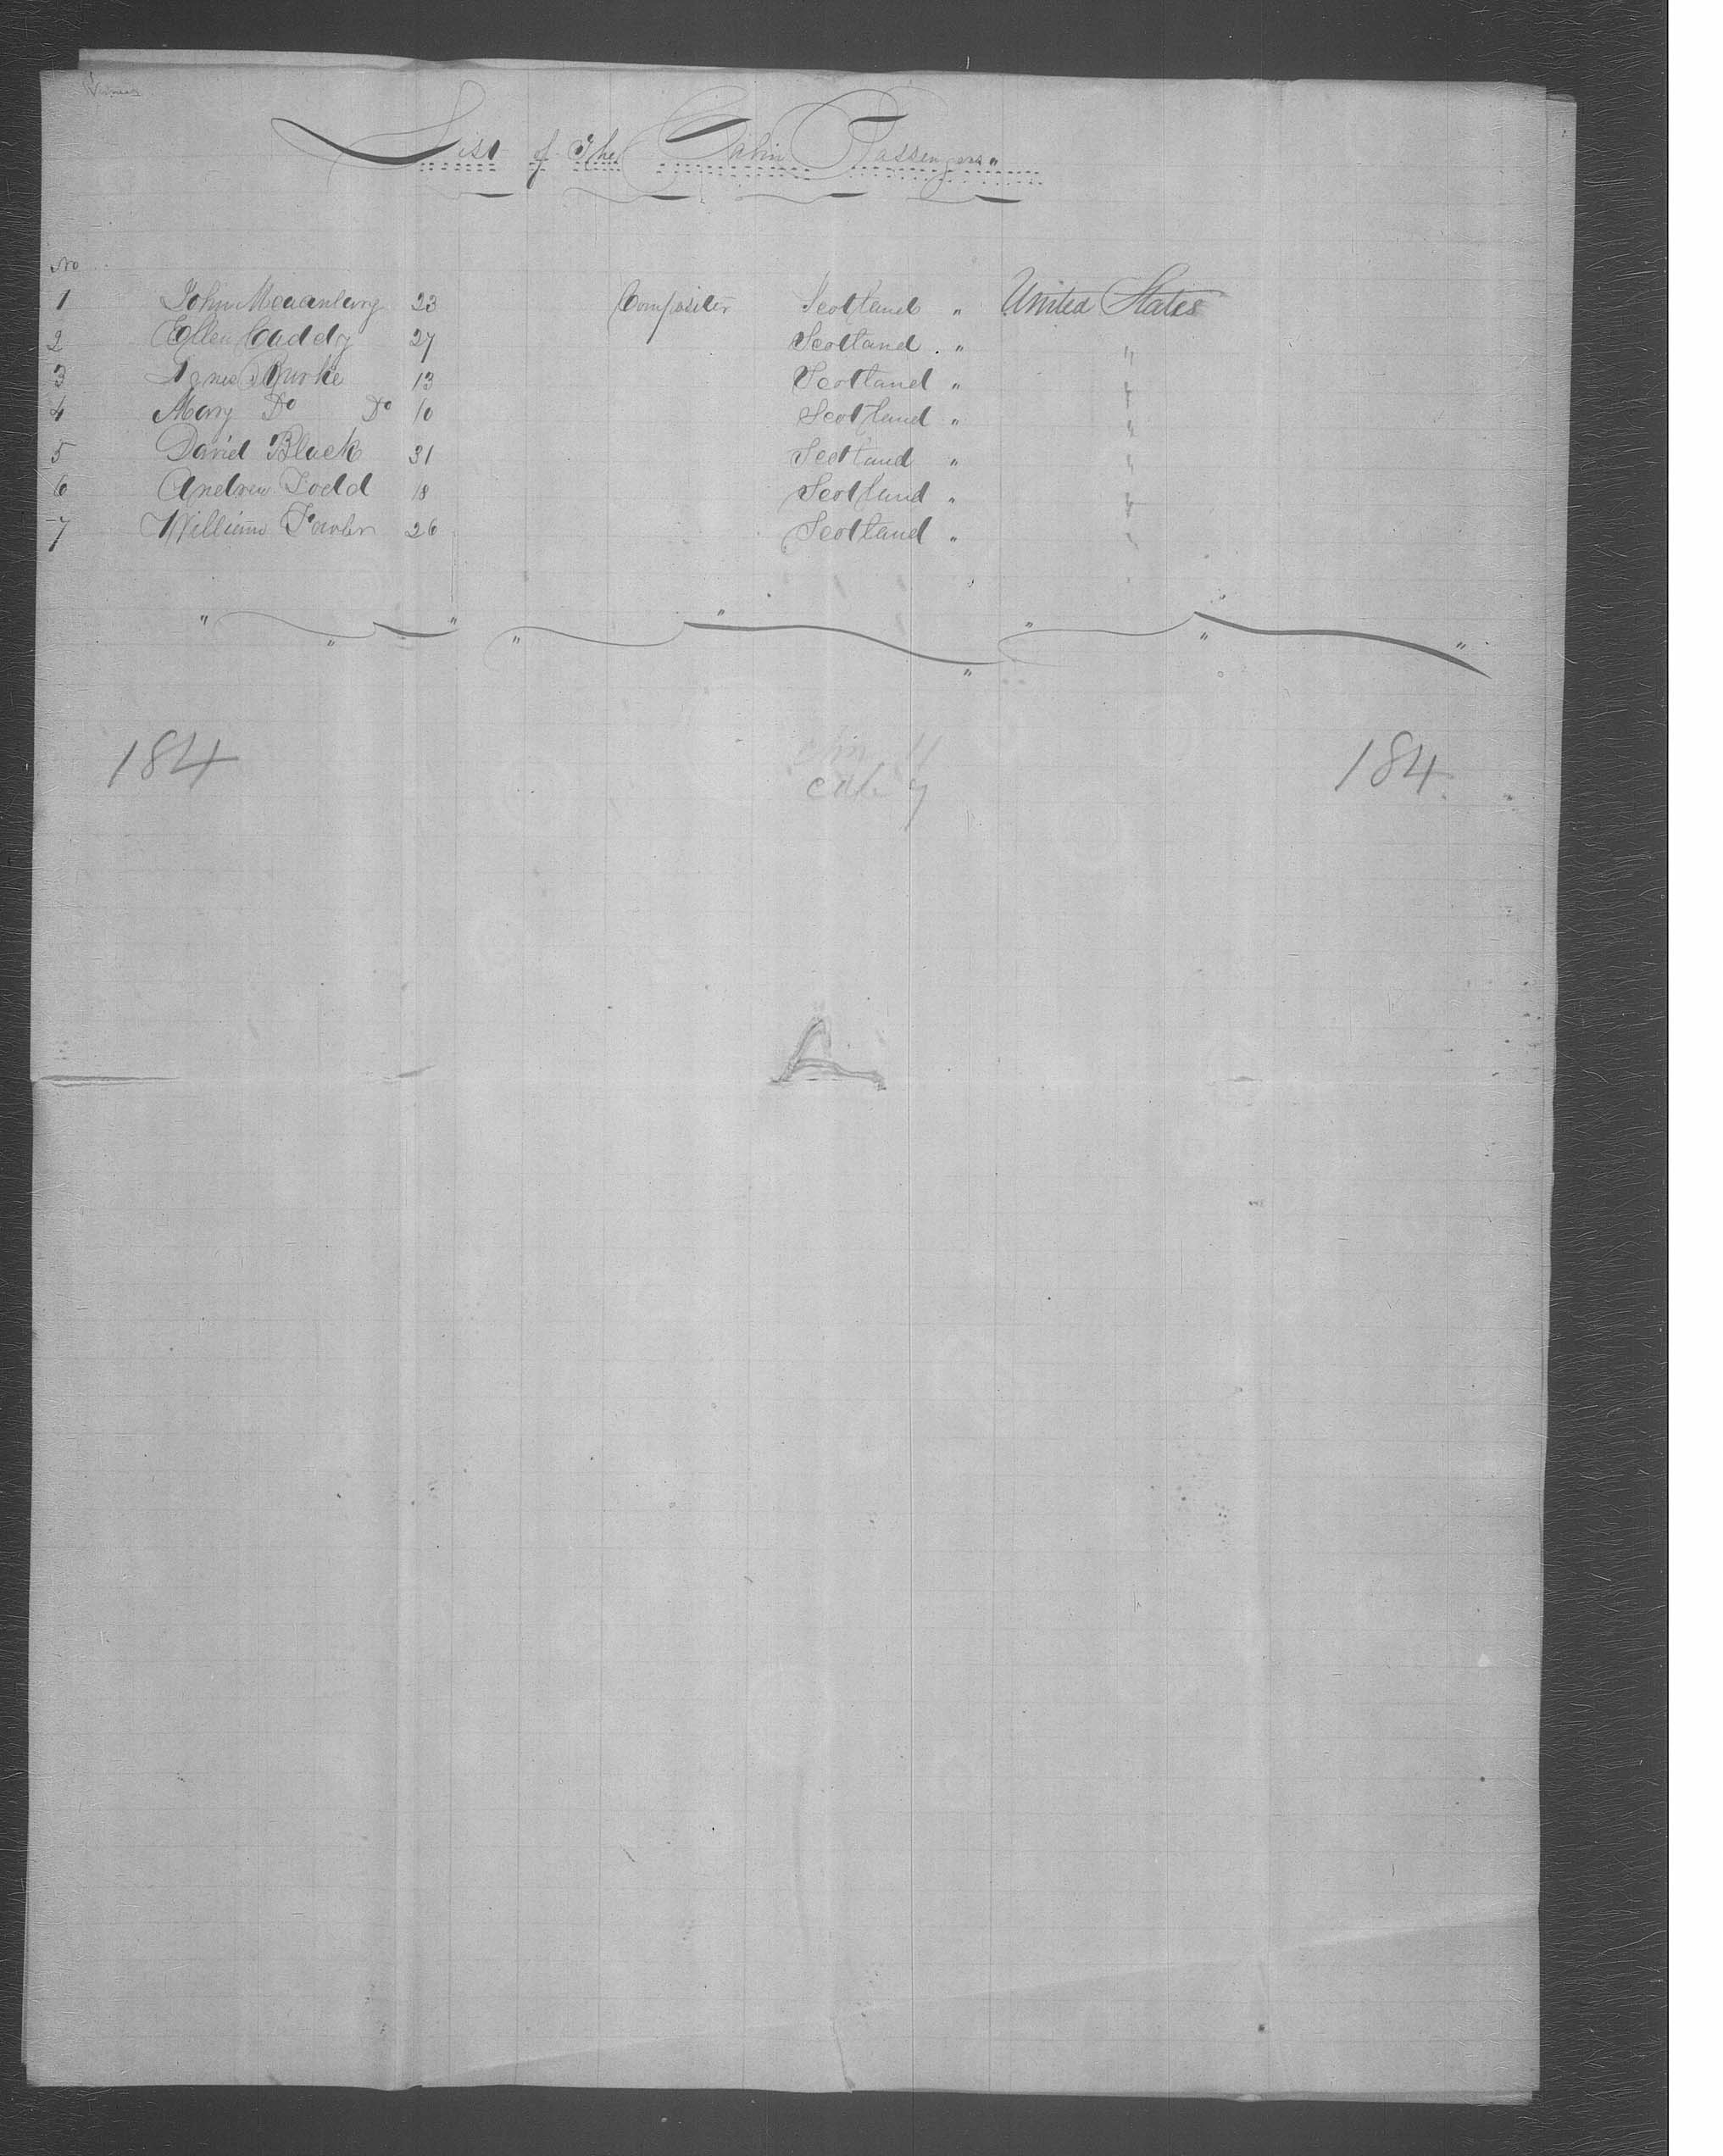 List of The Cabin Passengers "
No
1 John 23 Compositer Scotland " United States
2 Ellen Cadddy 27 Scotland . " "
3 Burke 13 Scotland " "
4 Mary Do Do 10 Scotland " "
5 David Black 31 Scotland " "
6 Andrew Todd 18 Scotland " "
7 William 26 Scotland " "
184 184
cab 7
A